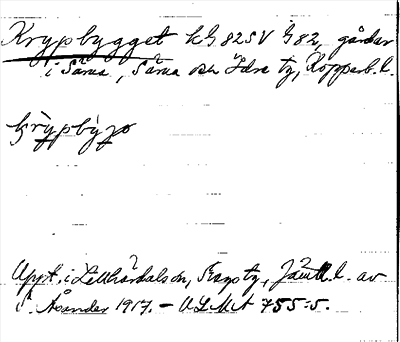 Krypbygget kG 82SV G 82, gårdar
i Särna, Särna och Idre tg, Kopparb. l.
krỳpbýgə
Uppt. i Lillhärdals sn, tg, Jämtl. l. av
Åsander 1917. – ULMA 755:5.